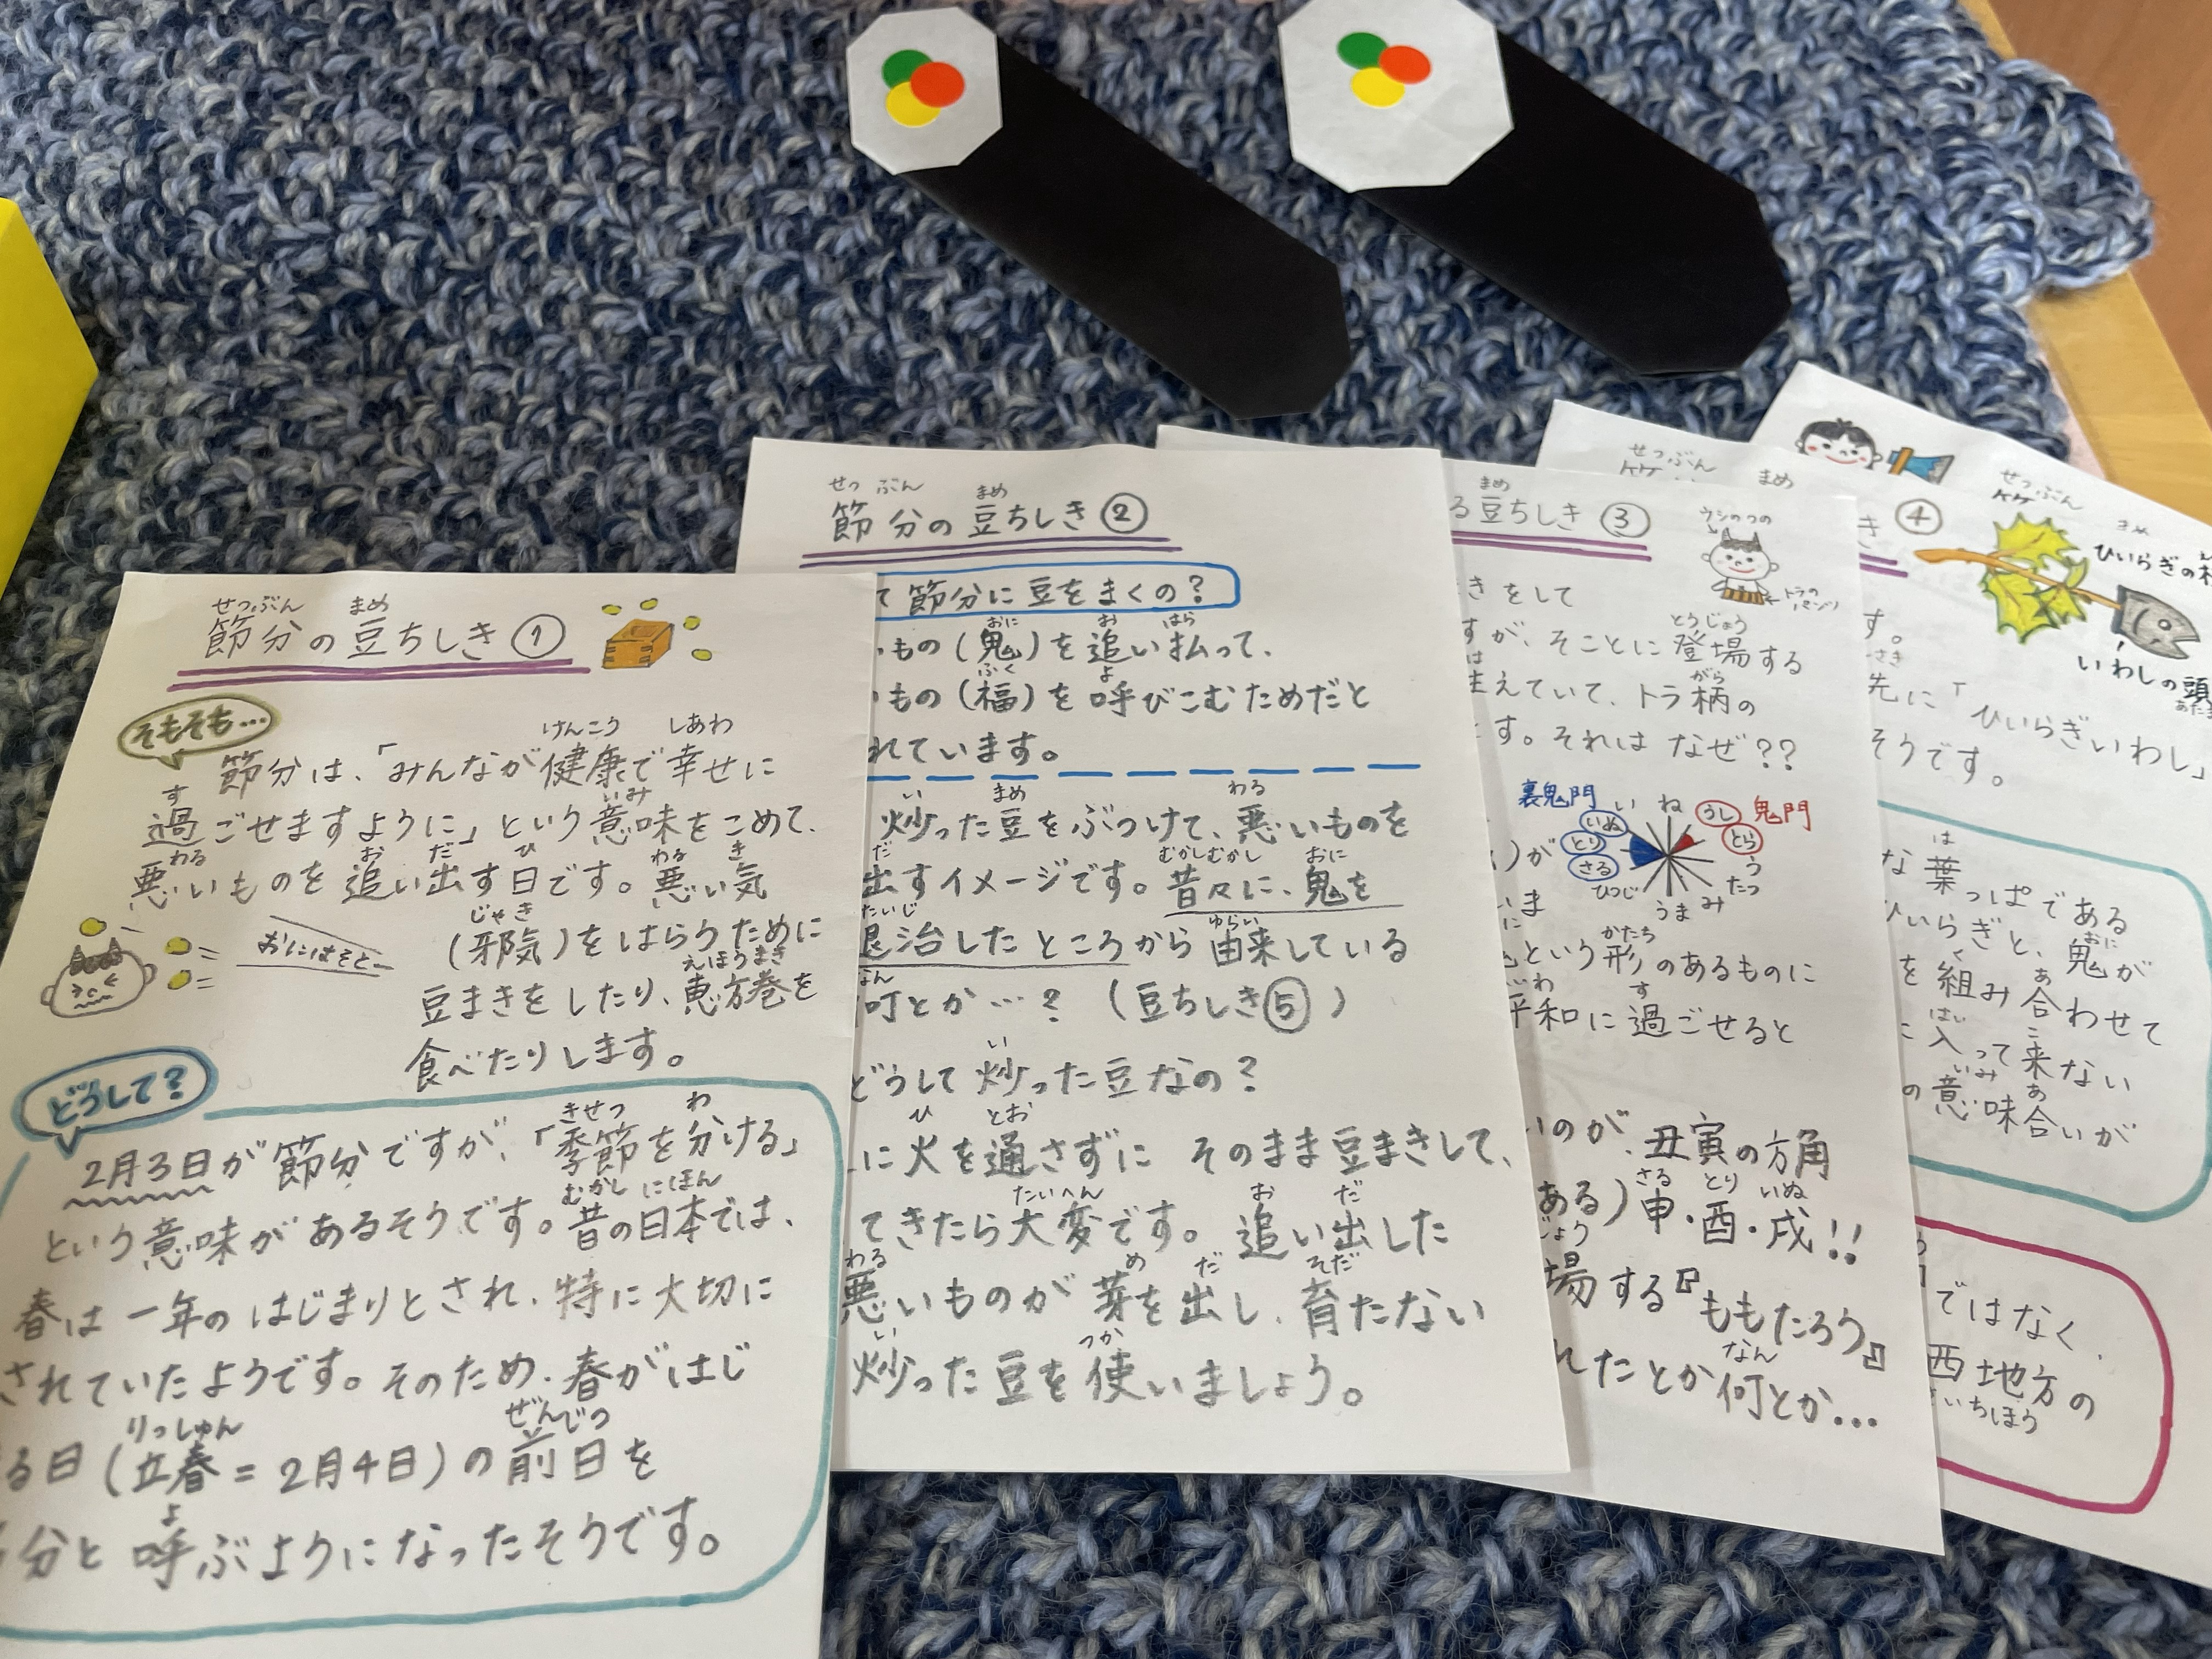 節分の豆ちしき①
そもそも…
節分は、「みんなが健康で幸せに
過ごせますように」という意味をこめて、
悪いものを追い出す日です。悪い気
(邪気)をはらうために
おにはそとー
豆まきをしたり、恵方巻を
食べたりします。
どうして?
2月3日が節分ですが、「季節を分ける」
という意味があるそうです。昔の日本では、
春は一年のはじまりとされ、特に大切に
されていたようです。そのため、春がはじ
る日(立春=2月4日)の前日を
分と呼ぶようになったそうです。
節分の豆ちしき②
て節分に豆をまくの?
もの(鬼)を追い払って、
もの(福)を呼びこむためだと
れています。
炒った豆をぶつけて、悪いものを
出すイメージです。昔々に、鬼を
退治したところから由来している
何とか…?(豆ちしき⑤)
どうして炒った豆なの?
に火を通さずに そのまま豆まきして、
てきたら大変です。追い出した
悪いものが芽を出し、育たない
炒った豆を使いましょう。
る豆ちしき③
ウシのつの
トラのパンツ
きをして
すが、そことに登場する
生えていて、トラ柄の
す。それはなぜ??
裏鬼門 い ね うし 鬼門
いぬ とら
とり う
さる たつ
ひつじ うま み
)が
いま
という形のあるものに
平和に過ごせると
いのが、丑寅の方角
ある)申・酉・戌!!
場する『ももたろう』
れたとか何とか…
き④
せつぶん
まめ
ひいらぎの
いわしの頭
す。
先に「ひいらぎいわし」
そうです。
な葉っぱである
ひいらぎと、鬼が
を組み合わせて
に入って来ない
の意味合いが
ではなく、
西地方の